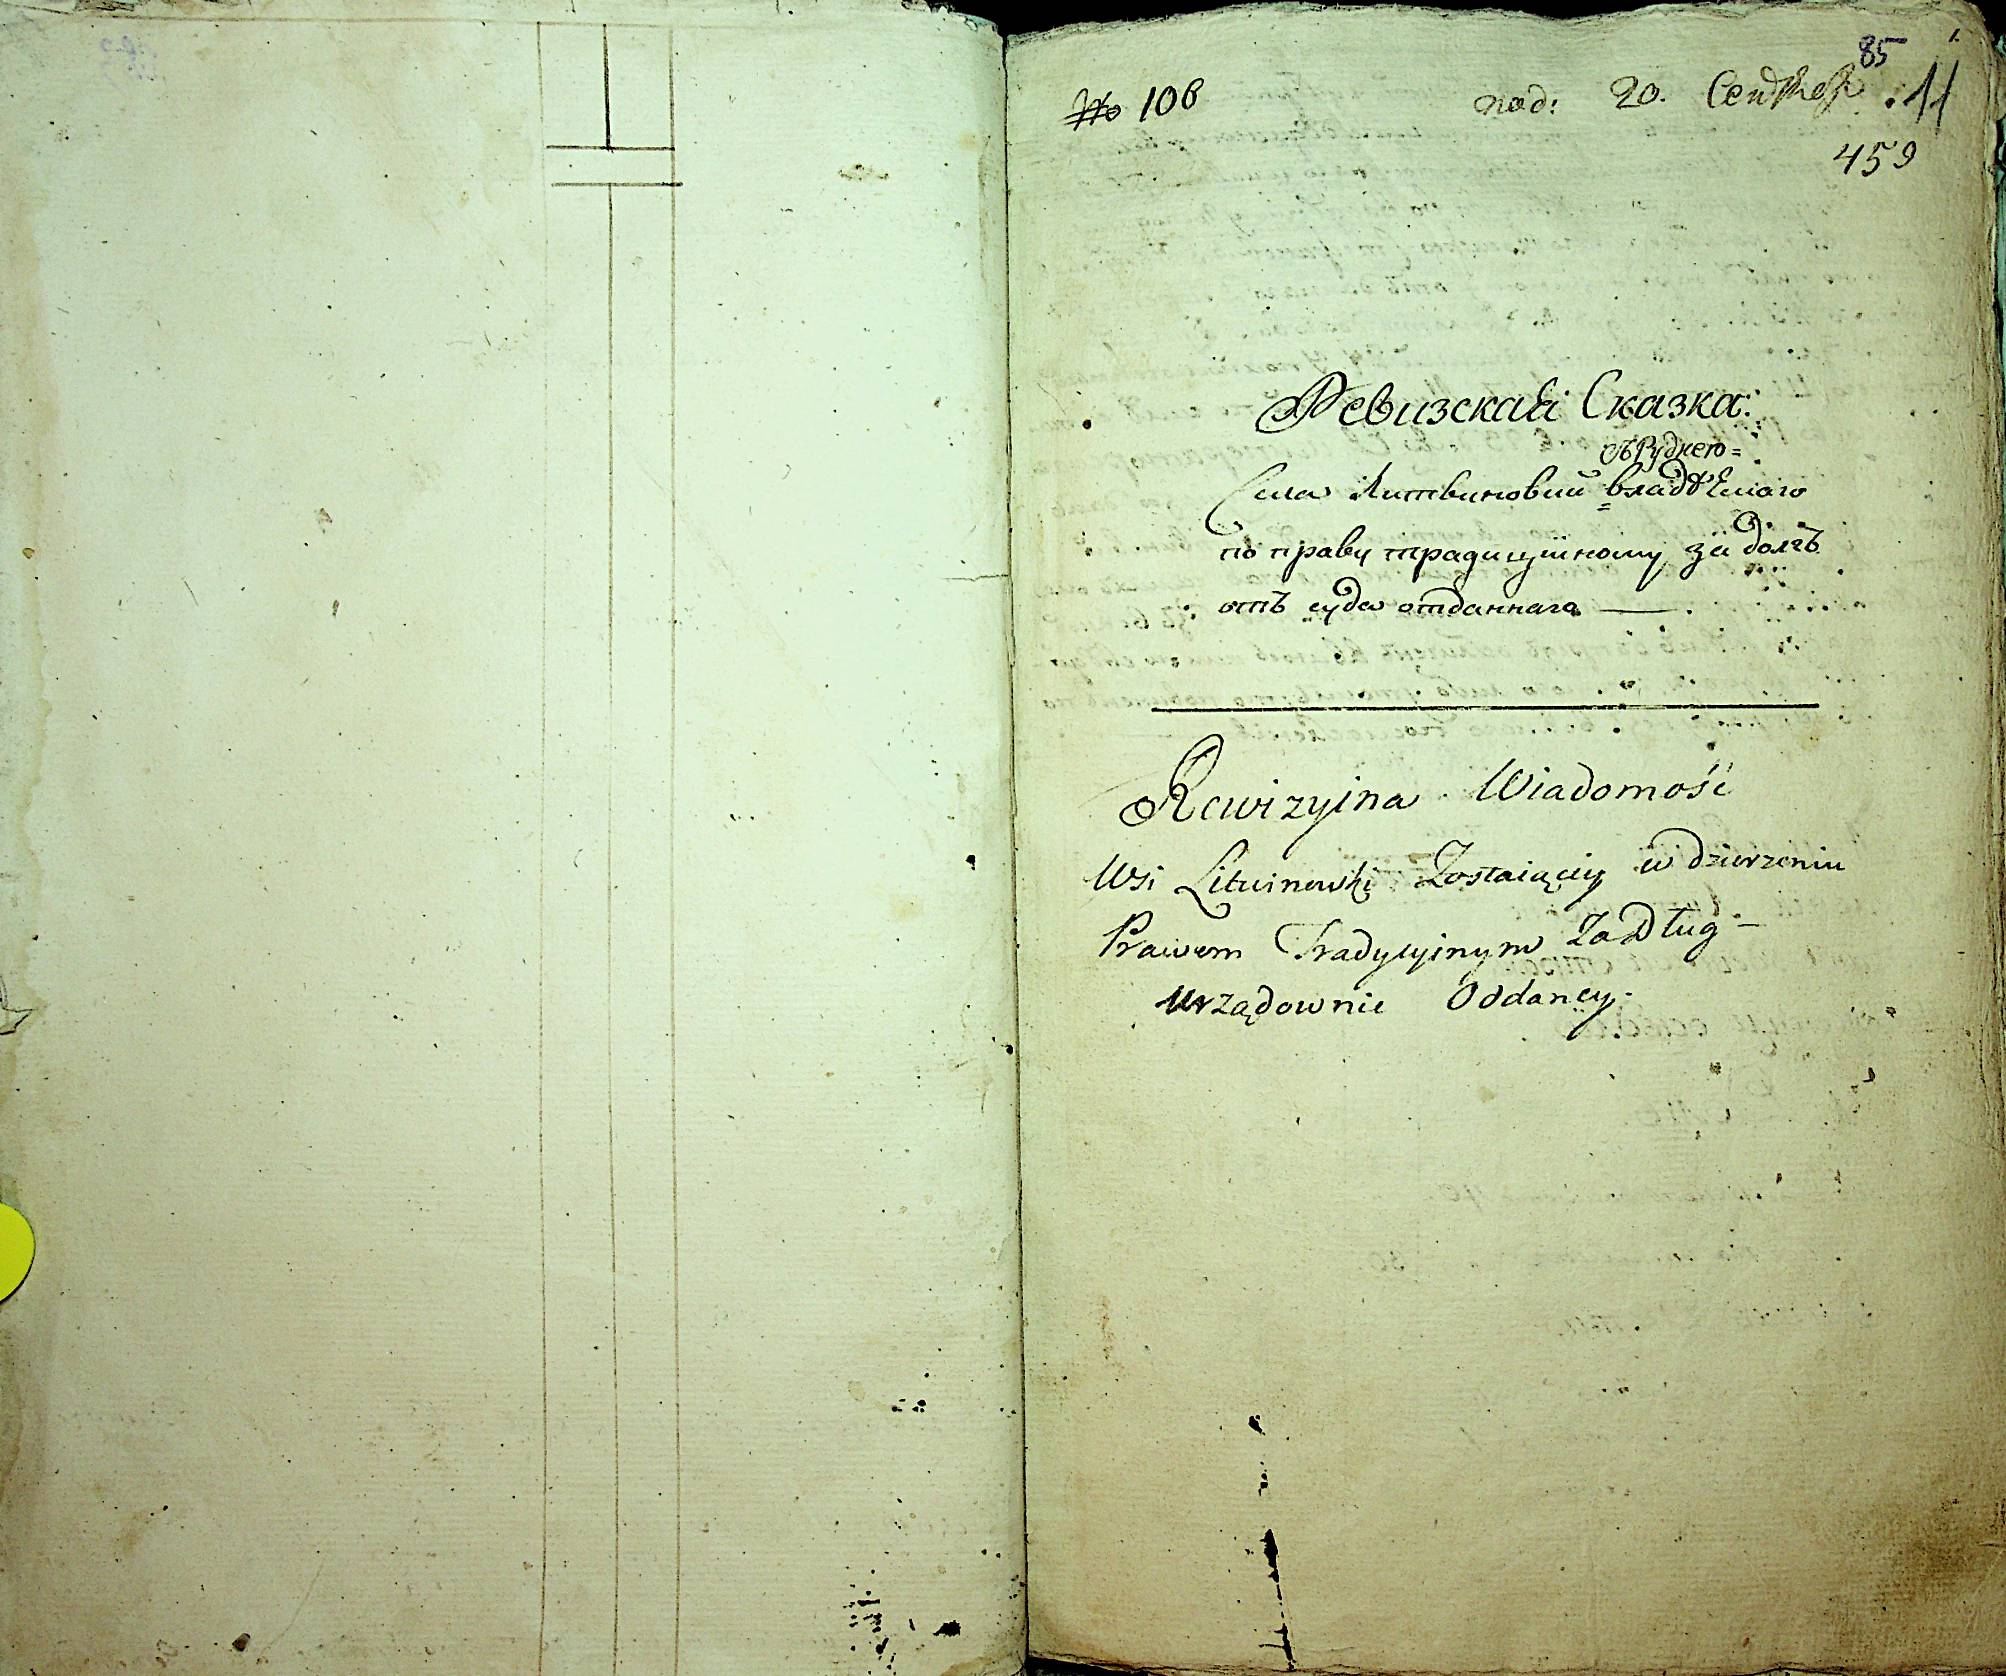 85
№ 106 под: 20. Сентбр 11
459
Ревизская Сказка:
Села Литвиновки владѣемаго
по праву традицийному за долгъ
отъ суда отданнаго
Rewizyina Wiadomość
Wsi Litwinowki Zostaiącey w dzierzeniu
Prawem Tradycyinym Za Dług
Urządownie Oddaney.